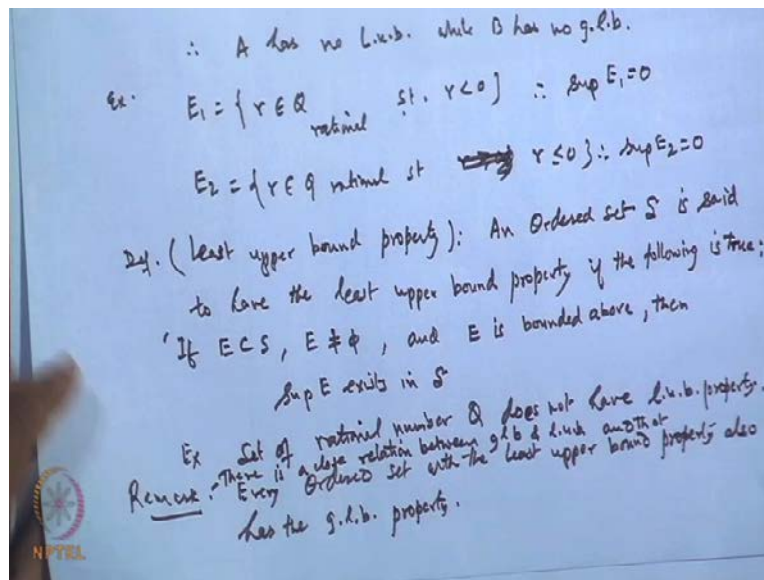 ∴ A has no l.u.b. while B has no g.l.b.
Ex. E₁ = {r ∈ Q rational st. r < 0} ∴ sup E₁ = 0
E₂ = {r ∈ Q rational st r ≤ 0} ∴ sup E₂ = 0
Def. (Least upper bound property): An Ordered set S is said
to have the least upper bound property if the following is true;
'If E ⊂ S, E ≠ φ, and E is bounded above, then
Sup E exists in S
Ex Set of rational number Q does not have l.u.b. property.
There is a close relation between g.l.b & l.u.b. and that
Remark: "Every Ordered set with the least upper bound property also
has the g.l.b. property.
NPTEL